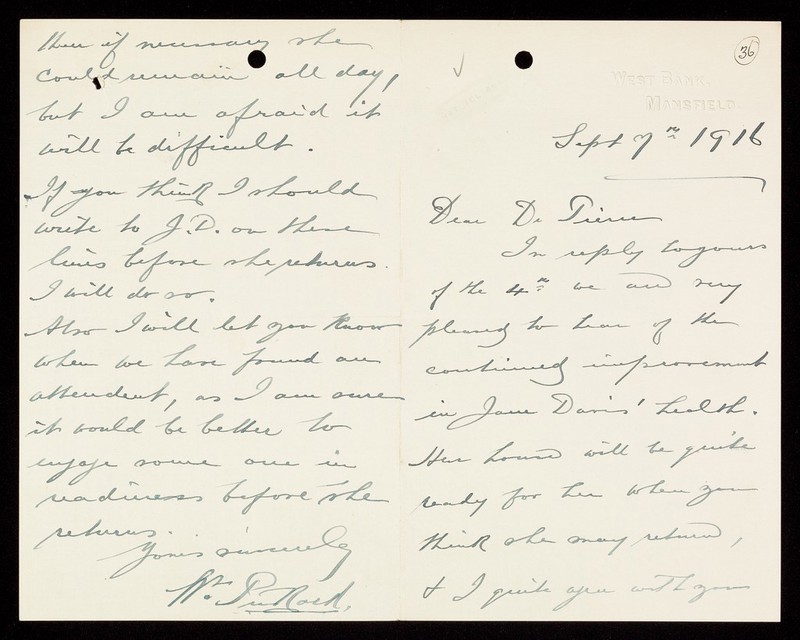 36
WEST BANK.
MANSFIELD.
Sept 7th 1916
Dear Dr Pierce
In reply to yours
of the 4th we are very
pleased to hear of the
continued improvement
in Jane Davis' health.
Her house will be quite
ready for her when you
think she may return,
& I quite agree with you
then if necessary she
could remain all day,
but I am afraid it
will be difficult.
If you think I should
write to J.D. on these
lines before she returns.
I will do so.
Also I will let you know
when we have found an
attendent, as I am sure
it would be better to
engage some one in
readiness before she
returns.
Yours sincerely
Wm.